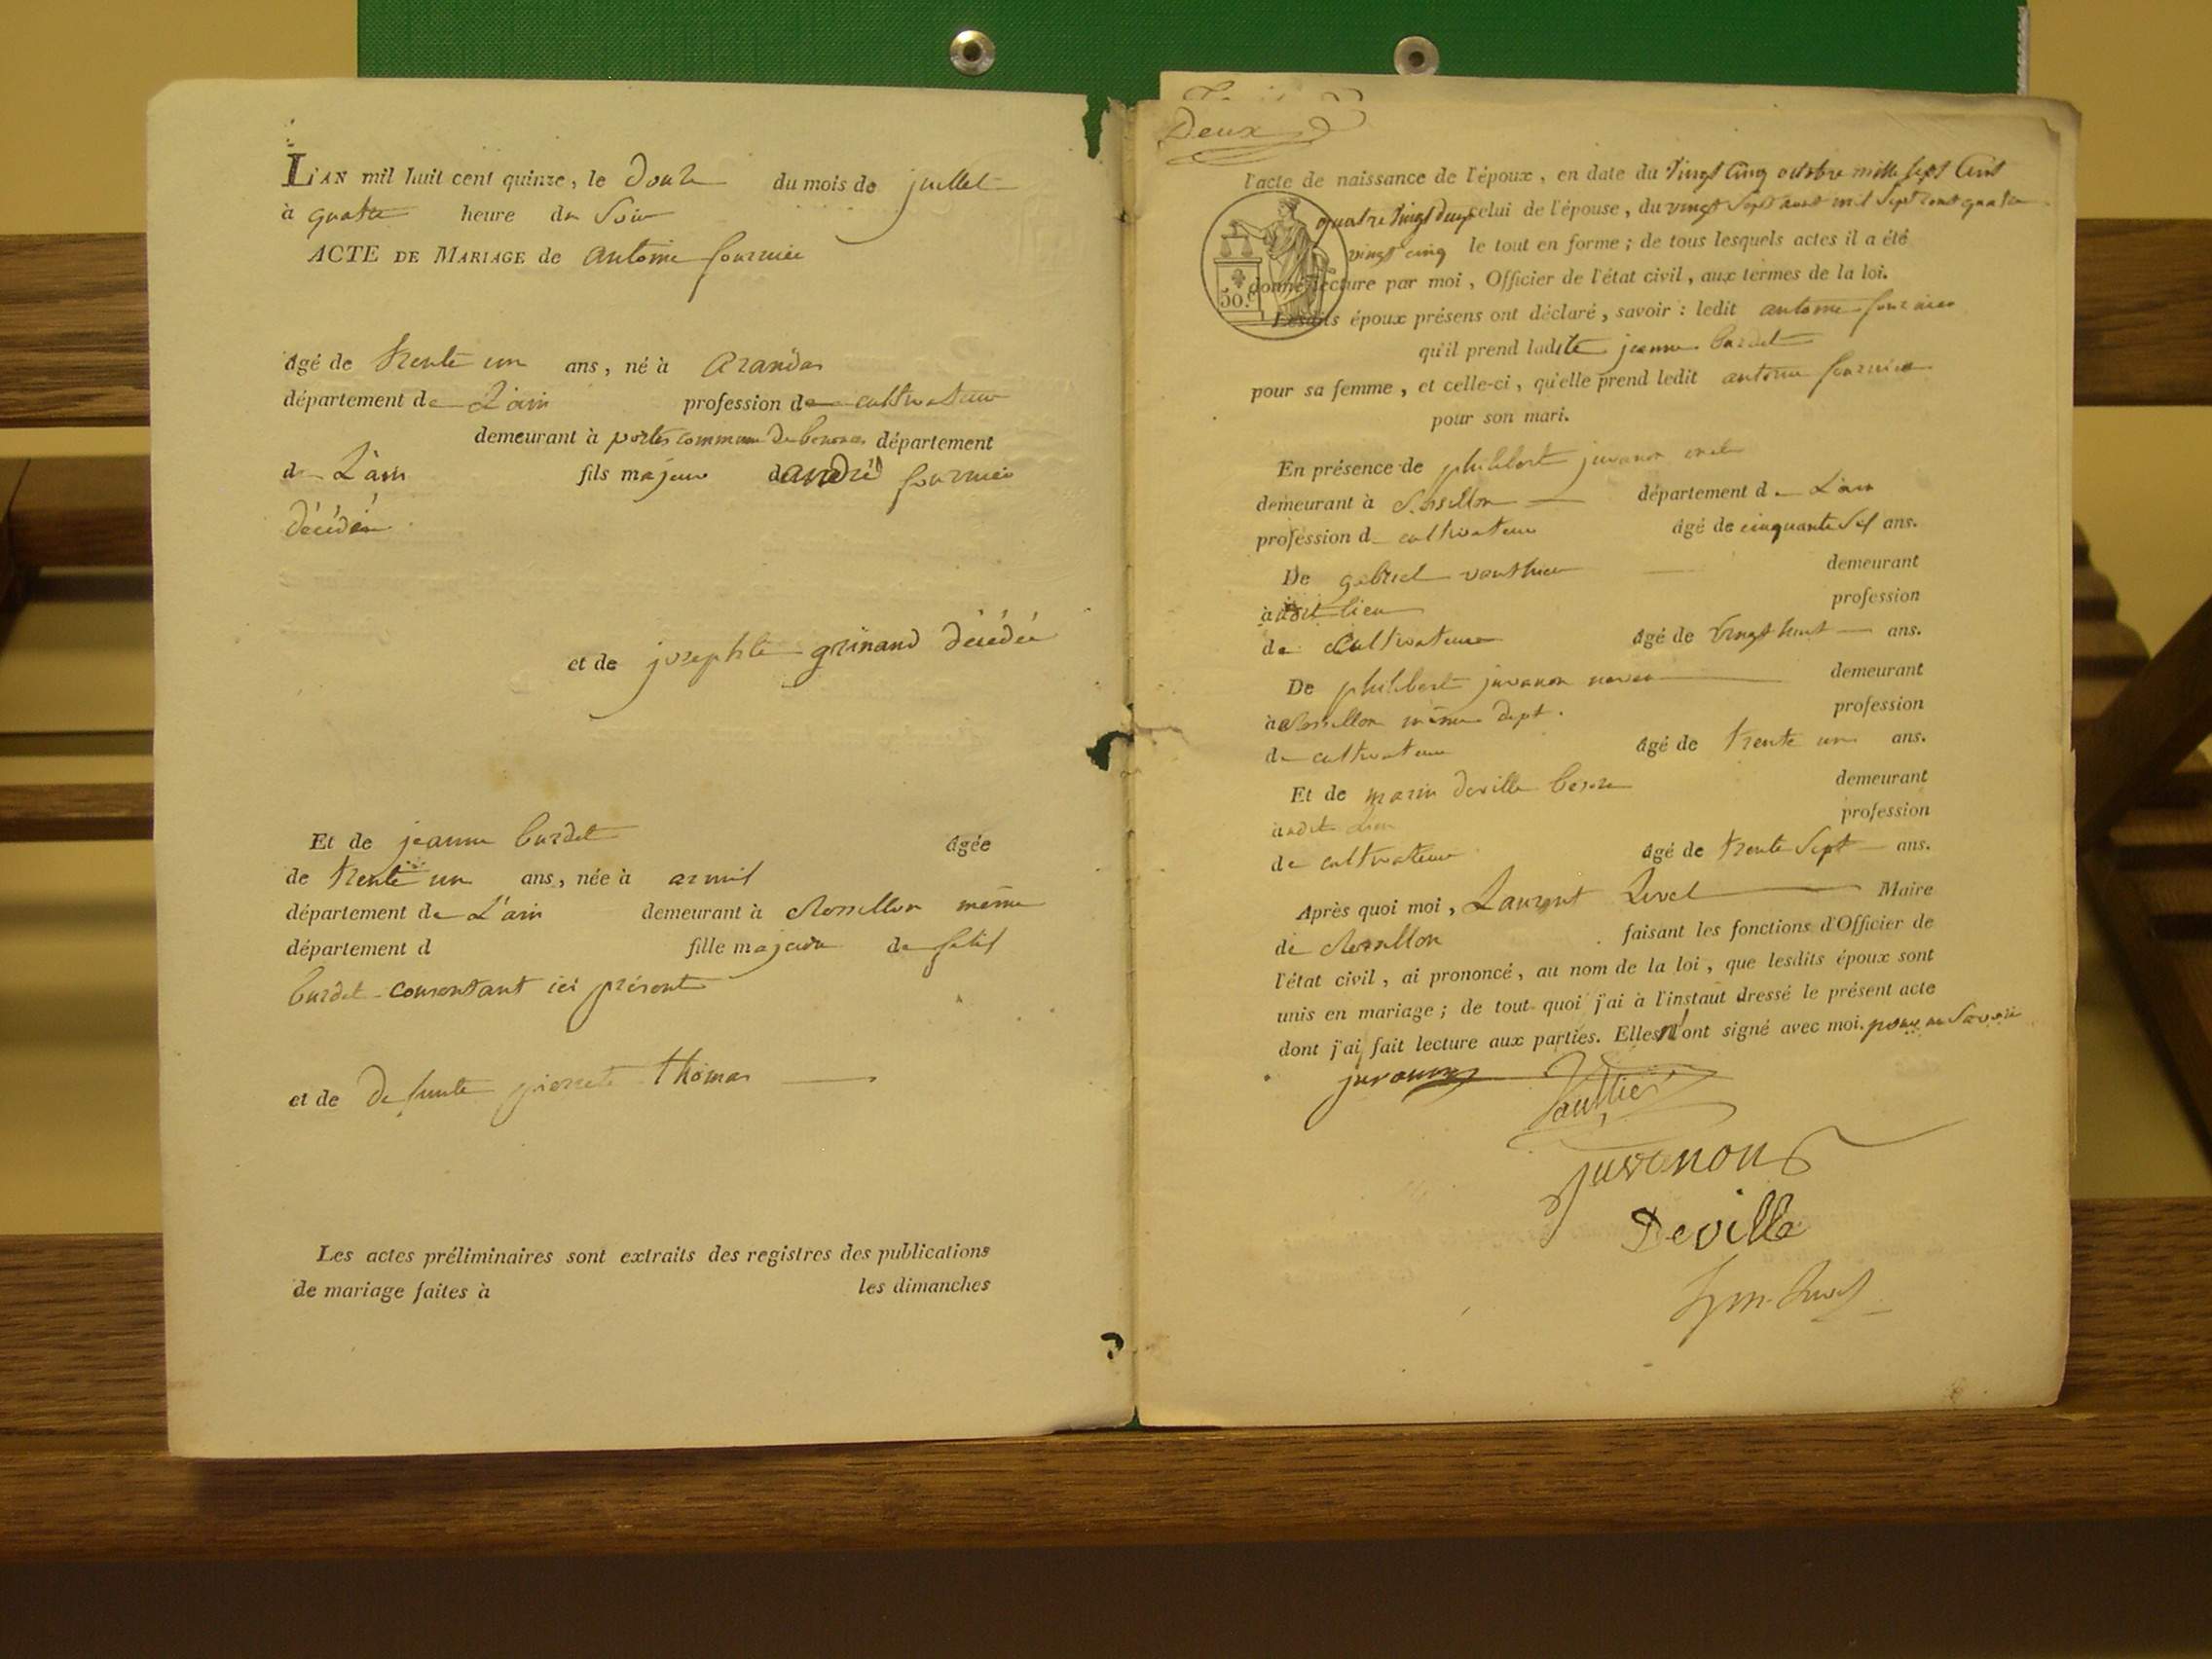 L'AN mil huit cent quinze, le douze du mois de juillet
à quatre heure du Soir
ACTE DE MARIAGE de antoine fournier
âgé de trente un ans, né à arandas
département de L'ain profession de cultivateur
demeurant à portes commune de benonces département
de L'ain fils majeur d andré fournier
décédé
et de josephte grinand décédée
Et de jeanne burdet âgée
de trente un ans, née à armix
département de L'ain demeurant à Rossillon même
département d fille majeure de
burdet consentant ici présent
et de defunte pierrete thomas
Les actes préliminaires sont extraits des registres des publications
de mariage faites à les dimanches
Deux
l'acte de naissance de l'époux, en date du vingt cinq octobre mille sept Cent
quatre vingt deux celui de l'épouse, du vingt sept aout mil sept cent quatre
vingt cinq le tout en forme; de tous lesquels actes il a été
donné lecture par moi, Officier de l'état civil, aux termes de la loi.
50.c
Lesdits époux présens ont déclaré, savoir: ledit antoine fournier
qu'il prend ladite jeanne burdet
pour sa femme, et celle-ci, qu'elle prend ledit antoine fournier
pour son mari.
En présence de philibert juvanon
demeurant à Rossillon département d L'ain
profession d cultivateur âgé de cinquante six ans.
De gabriel vauthier demeurant
à udit lieu profession
de Cultivateur âgé de vingt huit ans.
De philibert juvanon neveu demeurant
à Rossillon même dept. profession
de cultivateur âgé de trente un ans.
Et de marin deville demeurant
à udit lieu profession
de cultivateur âgé de trente sept ans.
Après quoi moi, Laurent Maire
de Rossillon faisant les fonctions d'Officier de
l'état civil, ai prononcé, au nom de la loi, que lesdits époux sont
unis en mariage; de tout quoi j'ai à l'instant dressé le présent acte
dont j'ai fait lecture aux parties. Elles n'ont signé avec moi. pour ne Savoir
juvanon
Vauttier
juvanon
Deville